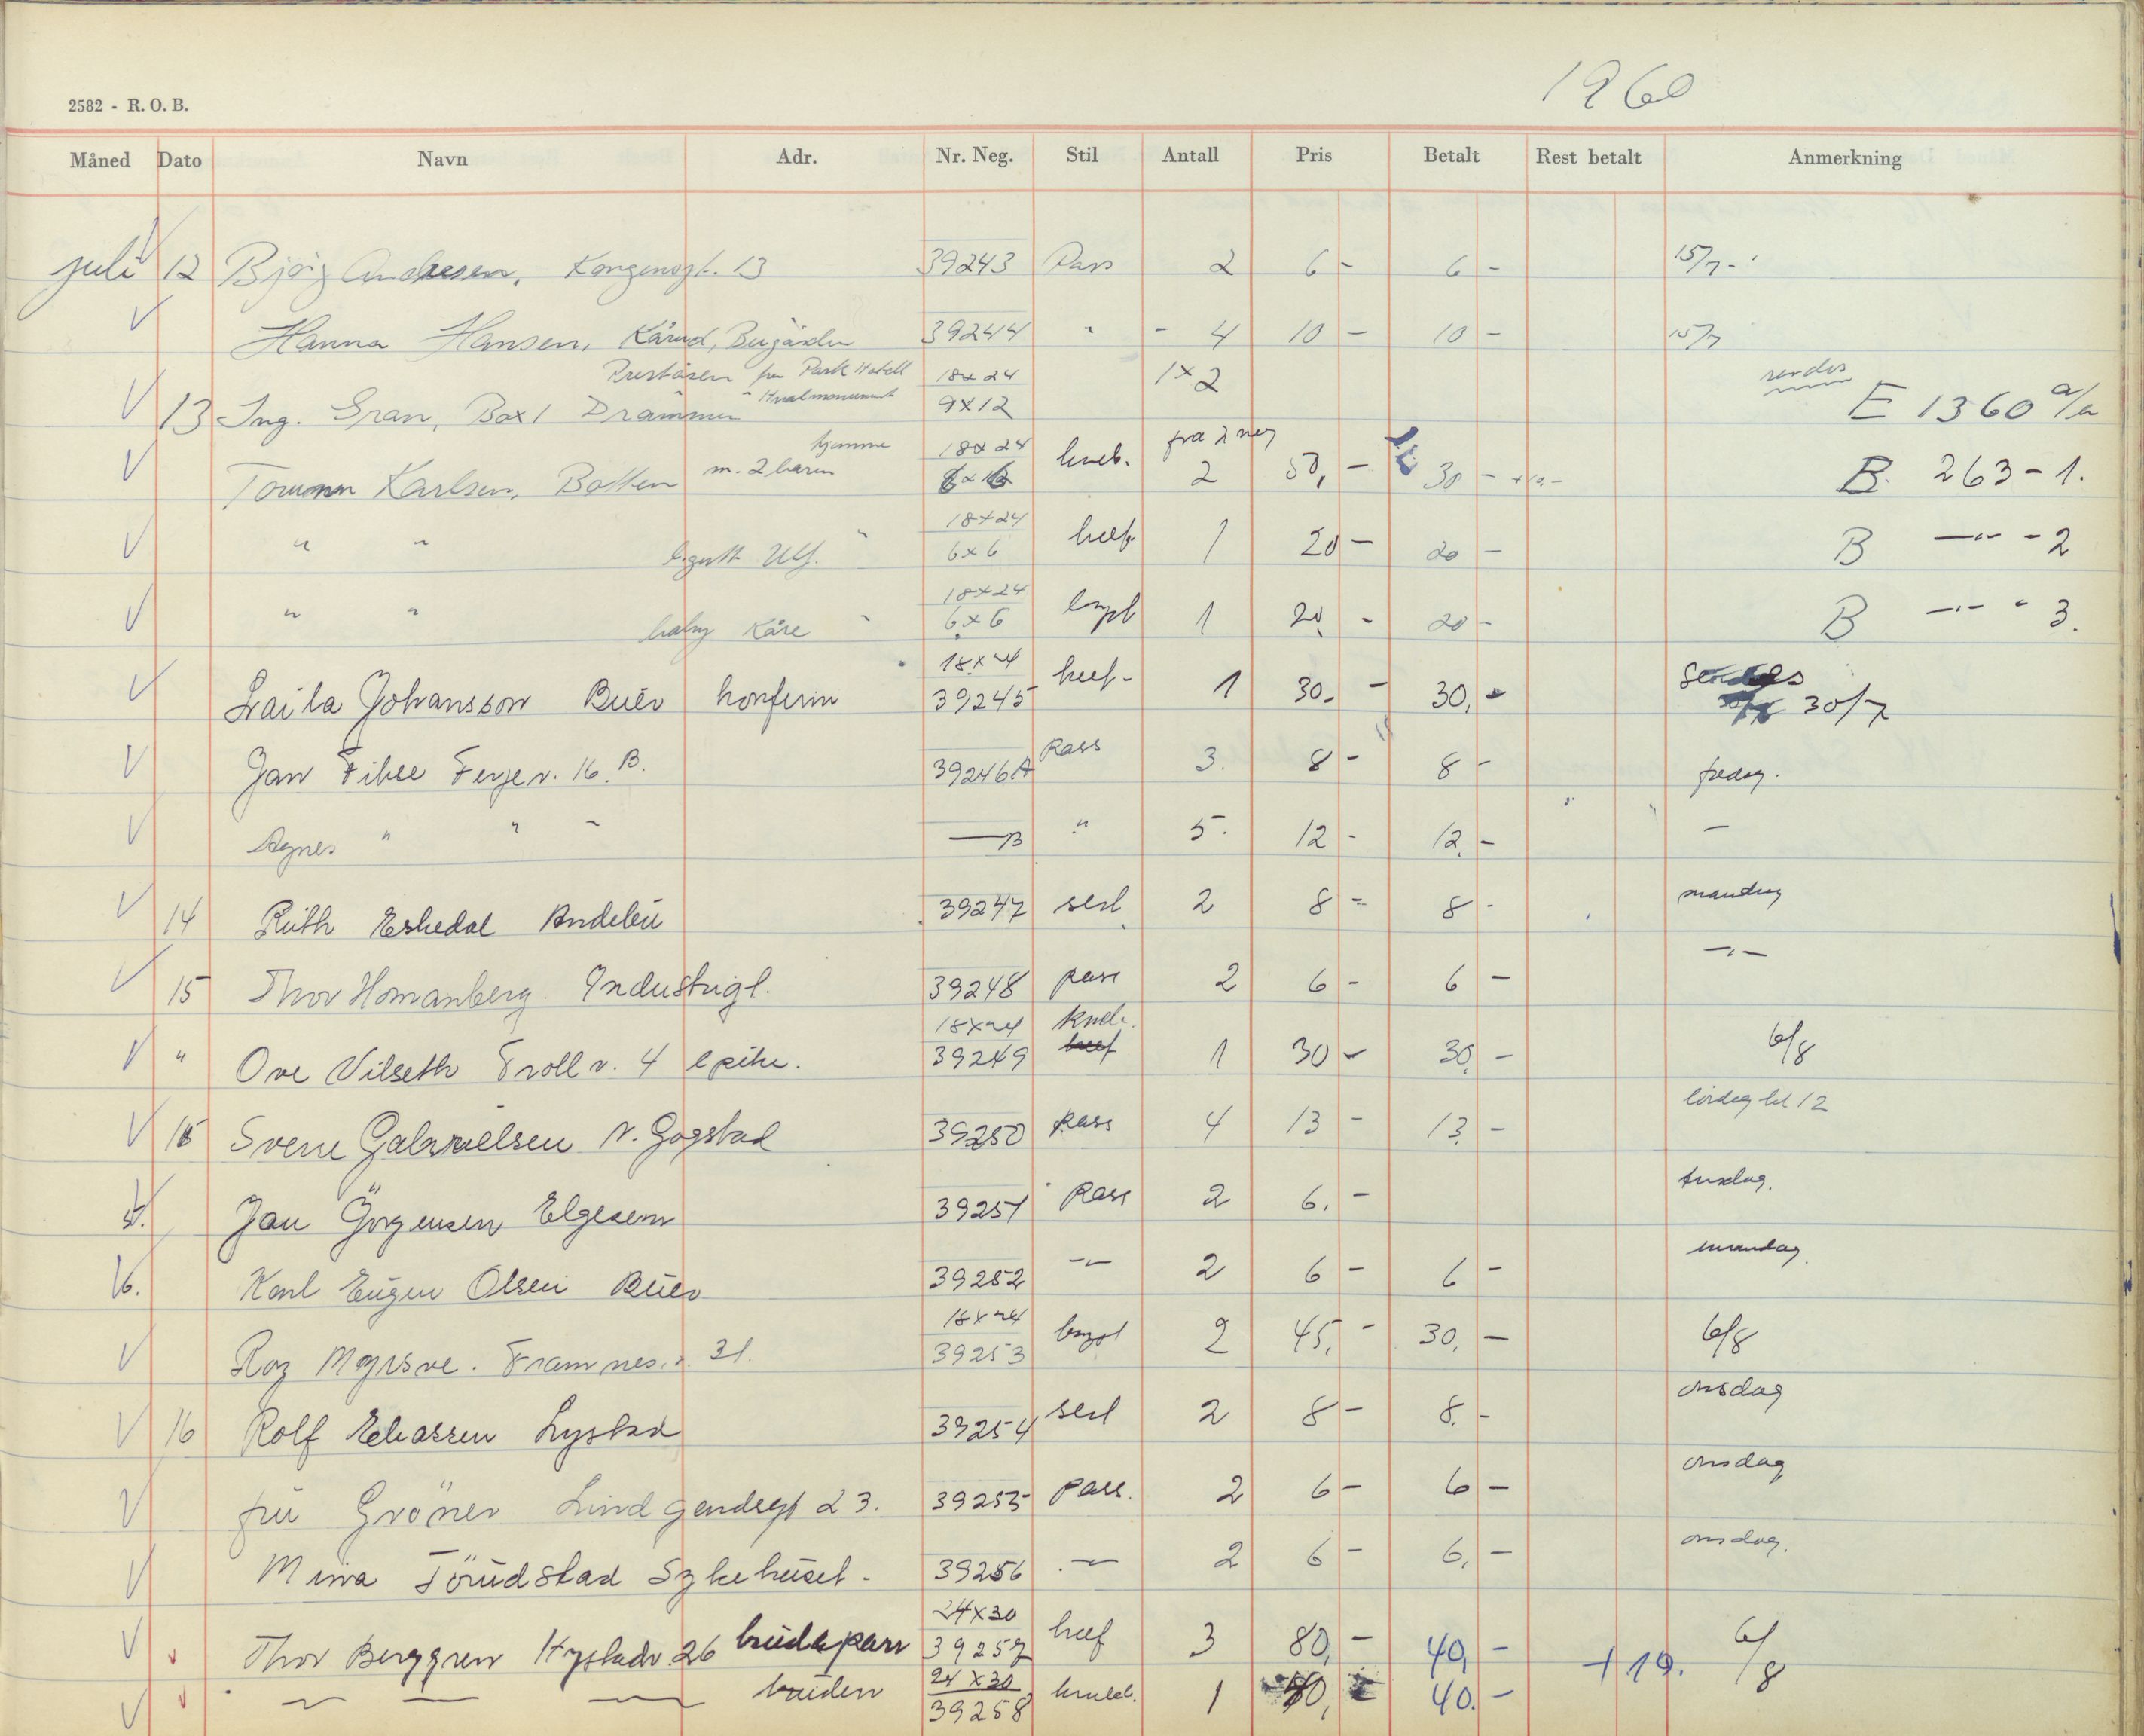 1960
2582 - R. O. B.
Måned Dato Navn Adr. Nr. Neg. Stil Antall Pris Betalt Rest betalt Anmerkning
juli 12 Bjørg Andresen, Kongensgt. 13 39243 Pass 2 6 - 6 - 15/7 -
Hanna Hansen, Bugården 39244 " - 4 10 - 10 - 15/7
Park Hotell 18x24 1x2 sendes
13 Ing. Gran, Box 1 Drammen " Hvalmonument 9x12 E 1360 a/a
hjemme 18x24 fra 2 neg
Karlsen, m. 2 barn 2 50,- 30 - +10.- B. 263-1.
18x24
" " Ulf. " 6x6 1 20 - 20 - B —"— - 2
18x24
" " baby Kåre " 6x6 1 20 - 20 - B —"— - 3.
18x24
Laila Johansson Buer konfirm 39245 1 30.- 30,- 30/7
Jan Fihse Fergev. 16. B. 39246A Pass 3. 8 - 8 - fredag.
Agnes " " " —B " 5. 12 - 12.- —
14 Ruth Eskedal Andebu 39247 2 8 - 8 - mandag
15 Thor Homanberg. Industrigt. 39248 pass 2 6 - 6 - —"—
18x24
" Ove Vilseth Trollv. 4 39249 1 30 - 30,- 6/8
15 Svenn Gabrielsen N. Gogstad 39250 pass 4 13 - 13.- lördag kl 12
Jan Görgensen Elgesem 39251 Pass 2 6.- tirsdag.
Karl Eugen Olsen Buer 39252 —"— 2 6 - 6 - mandag.
18x24
Roy Myrsve. Framnesv. 31. 39253 2 45,- 30,- 6/8
16 Rolf Eliassen Lystad 39254 2 8 - 8.- onsdag
fru Gröner Lindgaardsgt 23. 39255 Pass. 2 6 - 6 - onsdag
Minna Törudstad Sykehuset - 39256 —"— 2 6 - 6,- onsdag.
24x30
Thor Berggren Nystadv. 26 brudepar 39257 3 80,- 40,- +10. 6/8
24x30
—"— —"— —"— bruden 39258 1 40.-